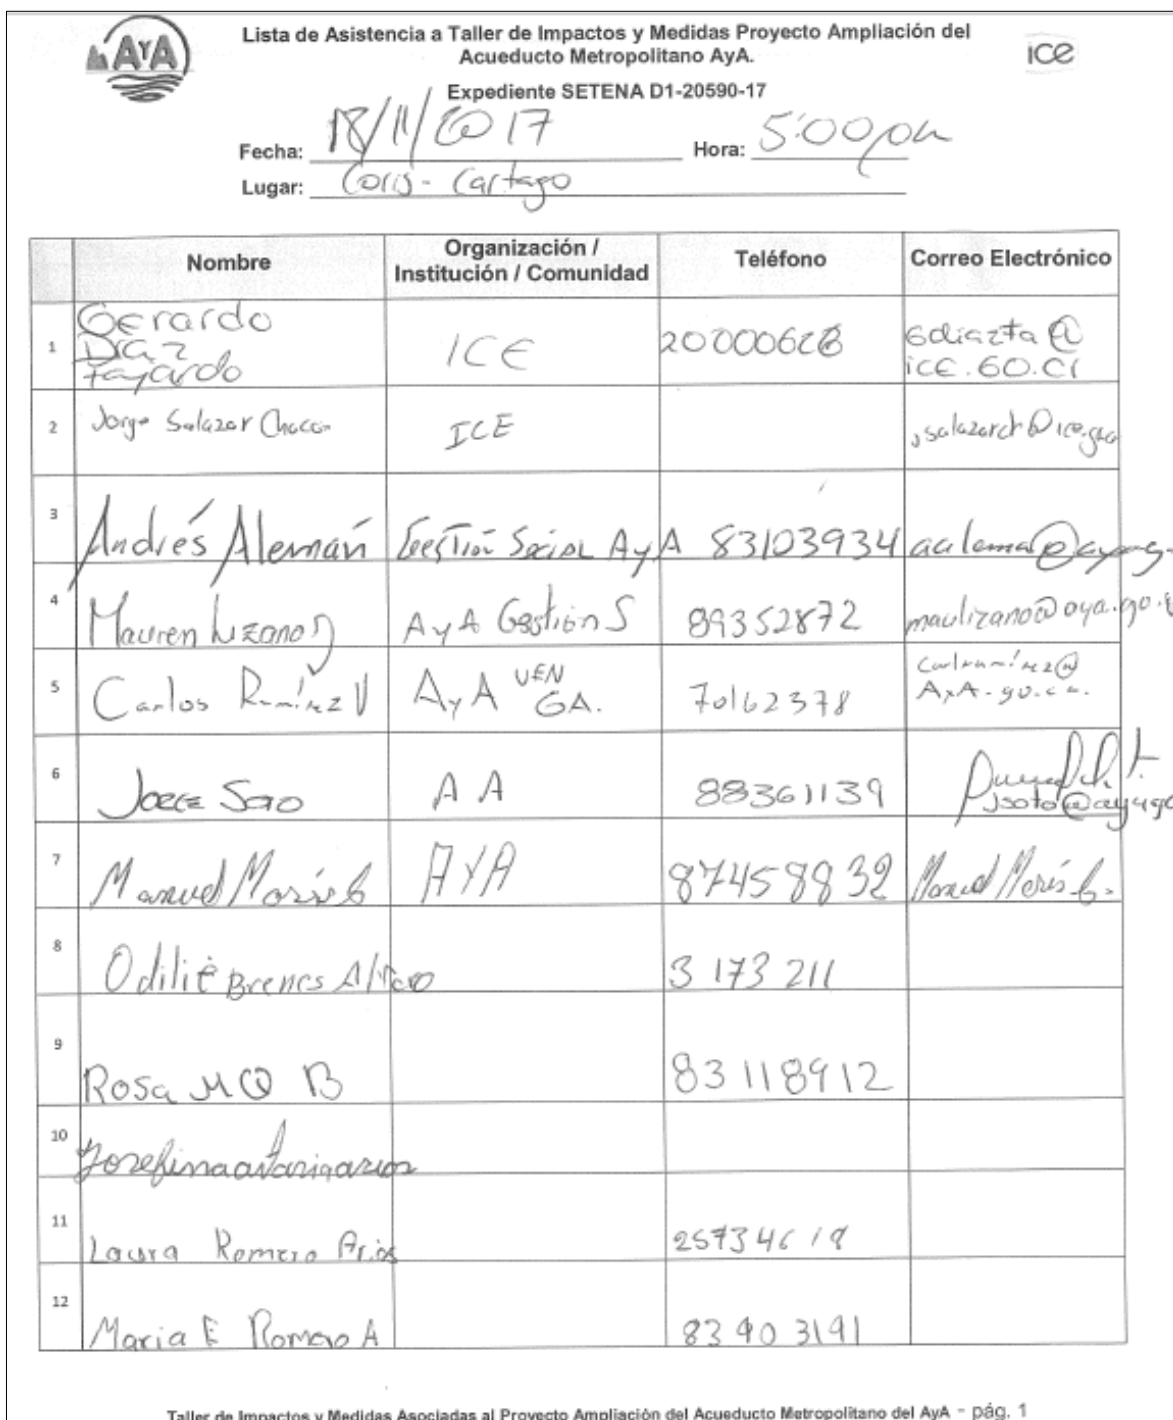 AYA
Lista de Asistencia a Taller de Impactos y Medidas Proyecto Ampliación del
Acueducto Metropolitano AyA.
ice
Expediente SETENA D1-20590-17
Fecha: 18/11/2017 Hora: 5:00 pm
Lugar: Coris - Cartago
Nombre Organización / Institución / Comunidad Teléfono Correo Electrónico
1 Gerardo Díaz Fajardo ICE
2 Jorge Salazar Chacón ICE
3 Andrés Alemán Gestión Social AyA 83103934
4 Mauren Lizano AyA Gestión S 89352872
5 Carlos Ramírez V AyA UEN GA. 70162378
6 Jorge Soto AA 88361139
7 Manuel AYA 87458832 Manuel
8 Odilie Brenes 3 173 211
9 Rosa M Q B 83 118912
10 Josefina
11 Laura Romero Arias 25734618
12 Maria E Romero A 83 903191
Taller de Impactos y Medidas Asociadas al Proyecto Ampliación del Acueducto Metropolitano del AyA - pág. 1